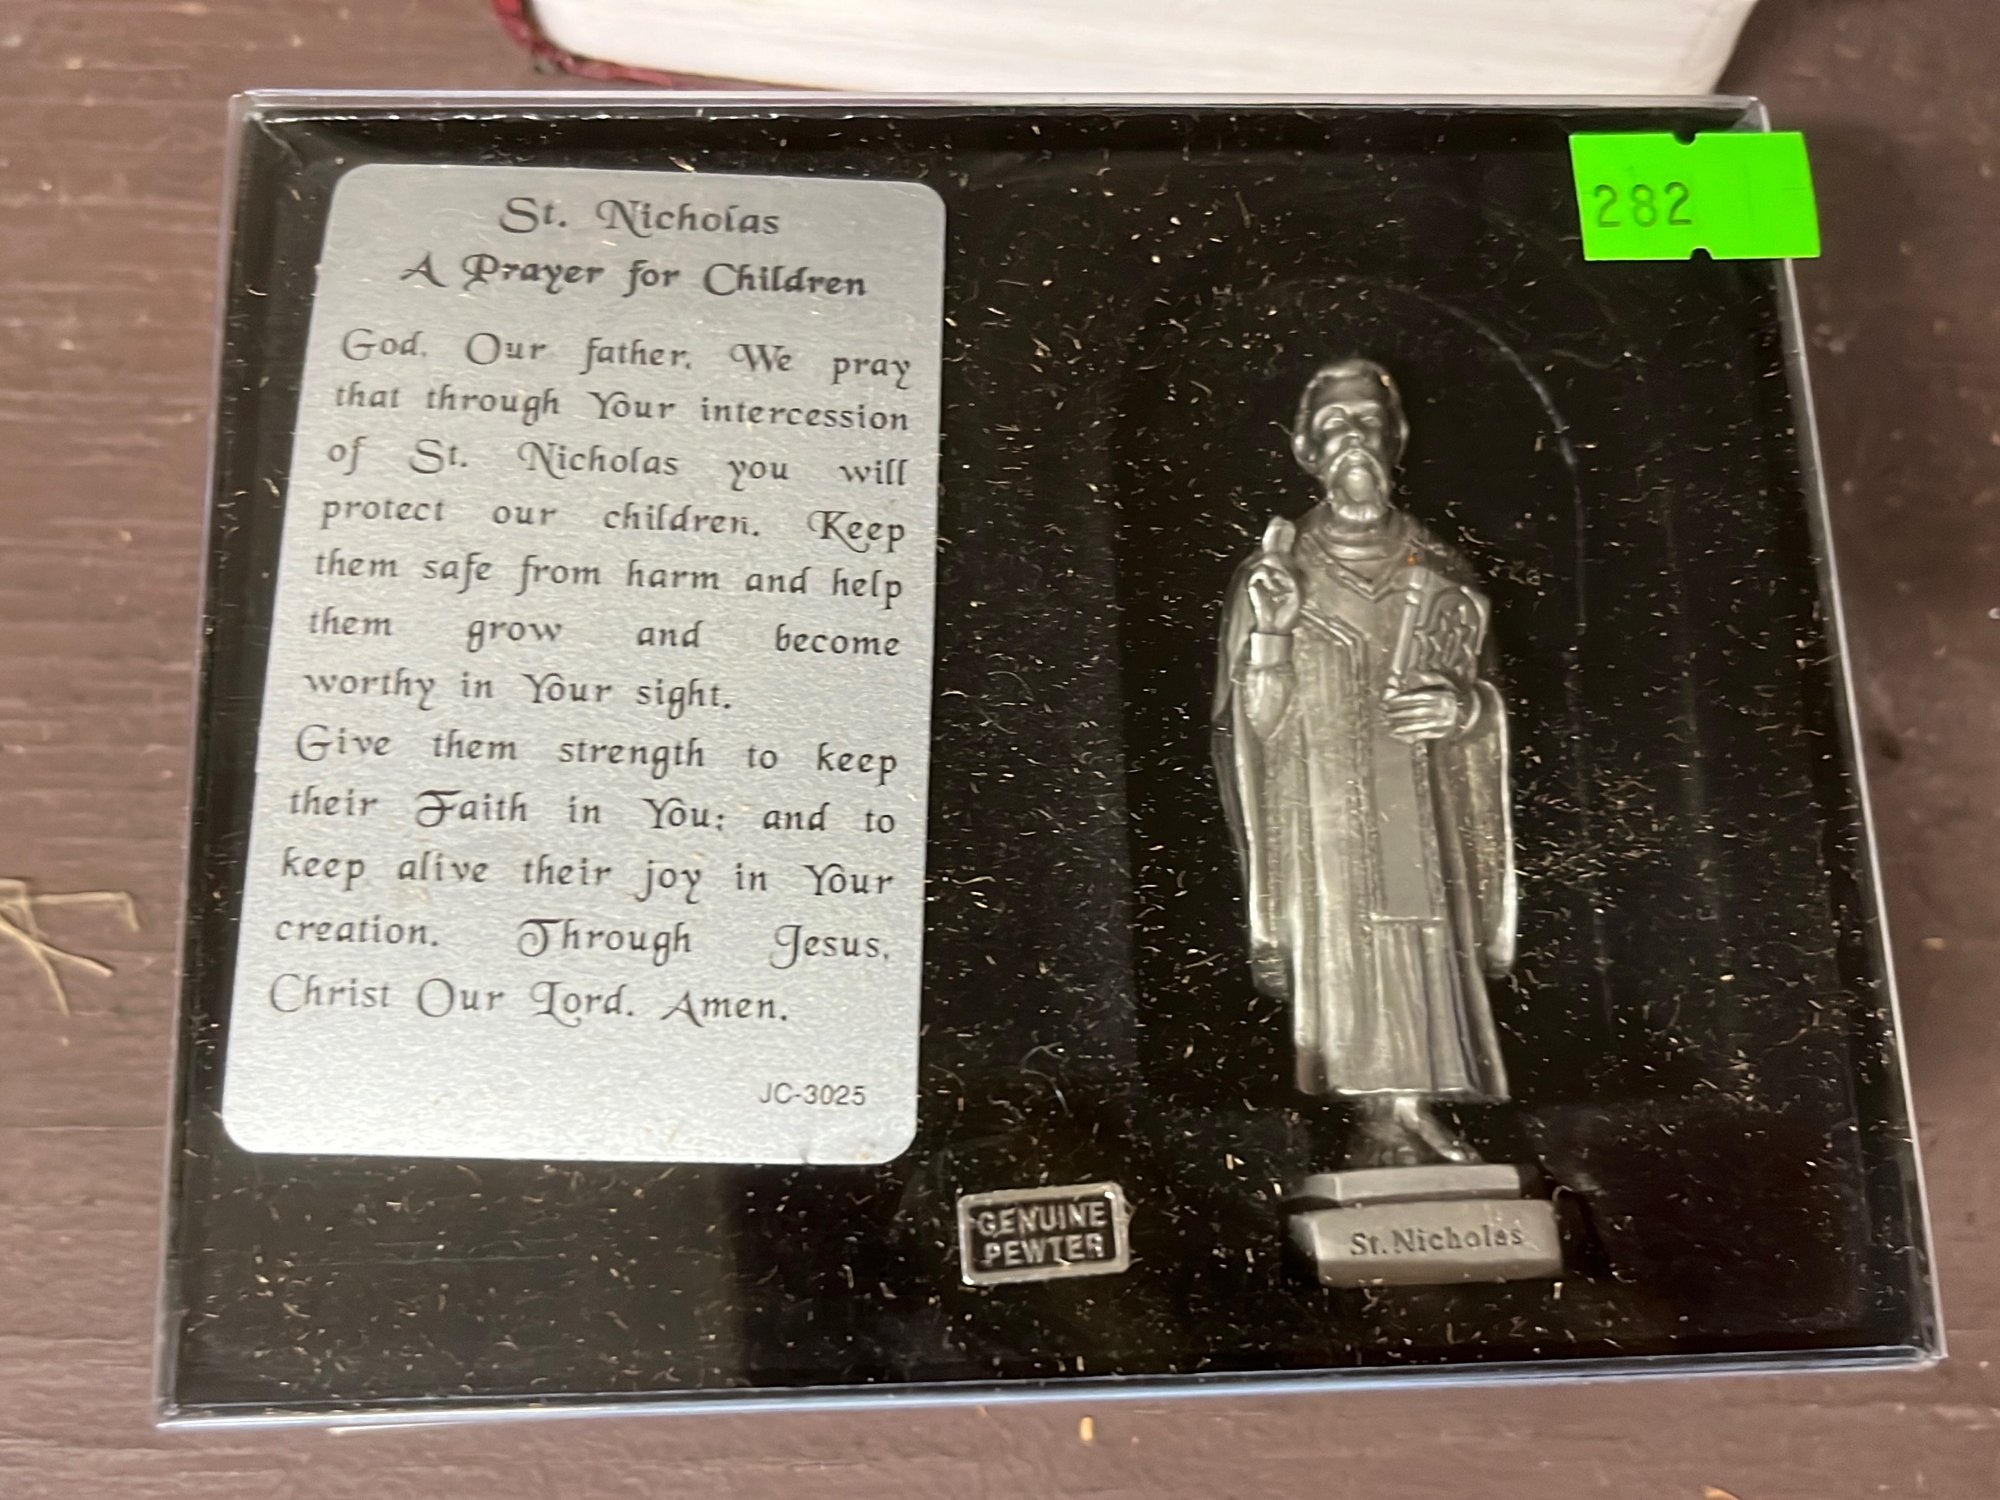 St. Nicholas
A Prayer for Children
God, Our father, We pray
that through Your intercession
of St. Nicholas you will
protect our children. Keep
them safe from harm and help
them grow and become
worthy in Your sight.
Give them strength to keep
their Faith in You; and to
keep alive their joy in Your
creation. Through Jesus,
Christ Our Lord. Amen.
JC-3025
282
GENUINE
PEWTER
St. Nicholas